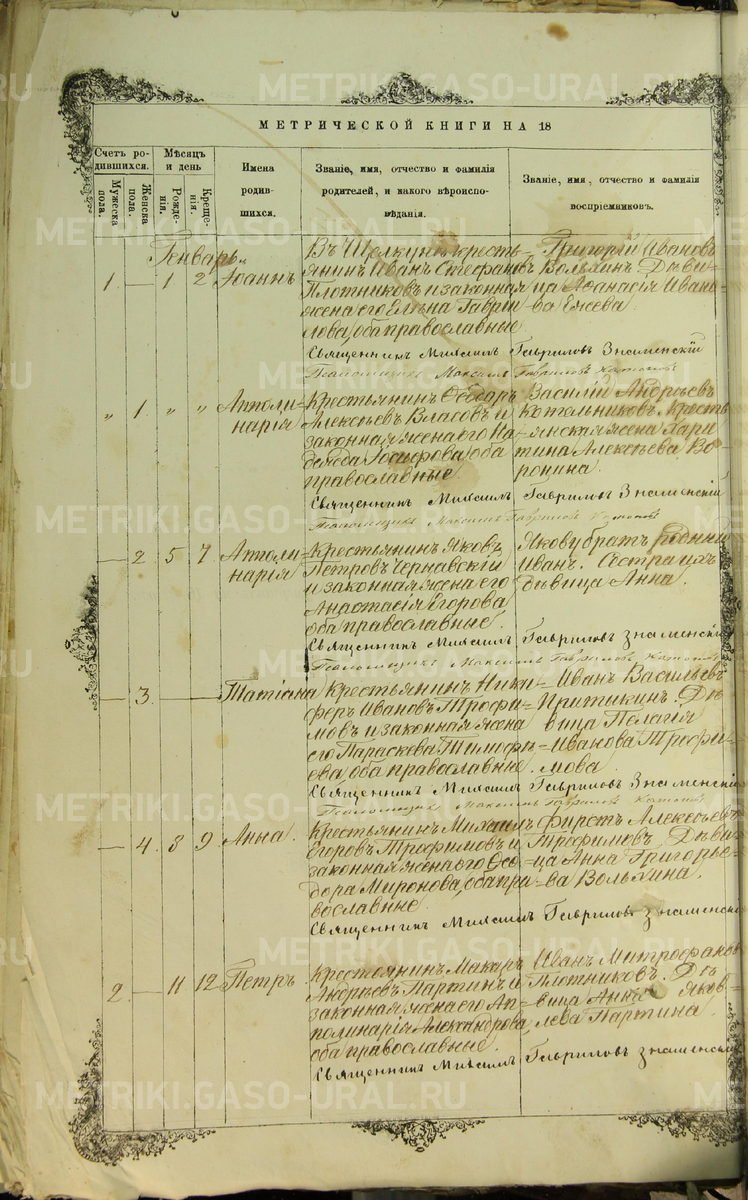 METRIKI.GASO-URAL.RU
МЕТРИЧЕСКОЙ КНИГИ НА 18
Счетъ родившихся.
Мужеска пола.
Женска пола.
Мѣсяцъ и день
Рожденія.
Крещенія.
Имена родившихся.
Званіе, имя, отчество и фамилія родителей, и какого вѣроисповѣданія.
Званіе, имя, отчество и фамилія воспріемниковъ.
Генварь
1. — 1 2 Іоаннъ
Въ Щелкунѣ кресть-
янинъ Иванъ Стефановъ
Плотниковъ и законная
жена его Елена Гаврі-
лова, оба православные
Григорій Ивановъ
Вольхинъ. Дѣви-
ца Аѳанасія Ивано-
ва Ежева.
Священникъ Михаилъ Гавриловъ Знаменскій
Псаломщикъ Максимъ Гавриловъ
„ 1. „ „ Апполи-
нарія
Крестьянинъ Ѳеодоръ
Алексѣевъ Власовъ и
законная жена его На-
дежда Іосифова, оба
православные
Василій Андреевъ
Котельниковъ. Кресть-
янская жена Хари-
тина Алексѣева Во-
ронина.
Священникъ Михаилъ Гавриловъ Знаменскій
Псаломщикъ Максимъ Гавриловъ
— 2 5 7 Апполи-
нарія
Крестьянинъ Яковъ
Петровъ Чернавскій
и законная жена его
Анастасія Егорова,
оба православные.
Якову братъ родный
Иванъ. Сестра ихъ
дѣвица Анна.
Священникъ Михаилъ Гавриловъ Знаменскій
Псаломщикъ Максимъ Гавриловъ
— 3. — — Татіана
Крестьянинъ Ники-
феръ Ивановъ Трофи-
мовъ и законная жена
его Параскева Тимофѣ-
ева, оба православные.
Иванъ Васильевъ
Притикинъ. Дѣ-
вица Пелагія
Иванова Трофи-
мова
Священникъ Михаилъ Гавриловъ Знаменскій
Псаломщикъ Максимъ Гавриловъ
— 4. 8 9 Анна.
Крестьянинъ Михаилъ
Егоровъ Трофимовъ и
законная жена его Ѳео-
дора Миронова, оба пра-
вославные
Фирстъ Алексѣевъ
Трофимовъ. Дѣви-
ца Анна Григорье-
ва Вольхина.
Священникъ Михаилъ Гавриловъ Знаменскій
2 — 11 12 Петръ
Крестьянинъ Макаръ
Андреевъ Партинъ и
законная жена его Ап-
полинарія Александрова,
оба православные.
Иванъ Митрофановъ
Плотниковъ. Дѣ-
вица Анна Яков-
лева Партина
Священникъ Михаилъ Гавриловъ Знаменскій